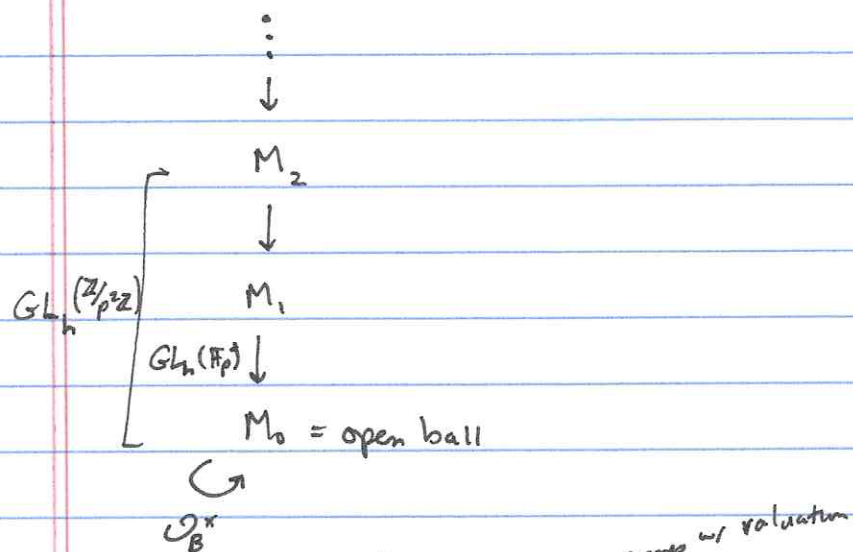 M₂
GLₕ(ℤ/p²ℤ)
M₁
GLₕ(𝔽ₚ)
M₀ = open ball
𝒪_B^×
w/ valuation